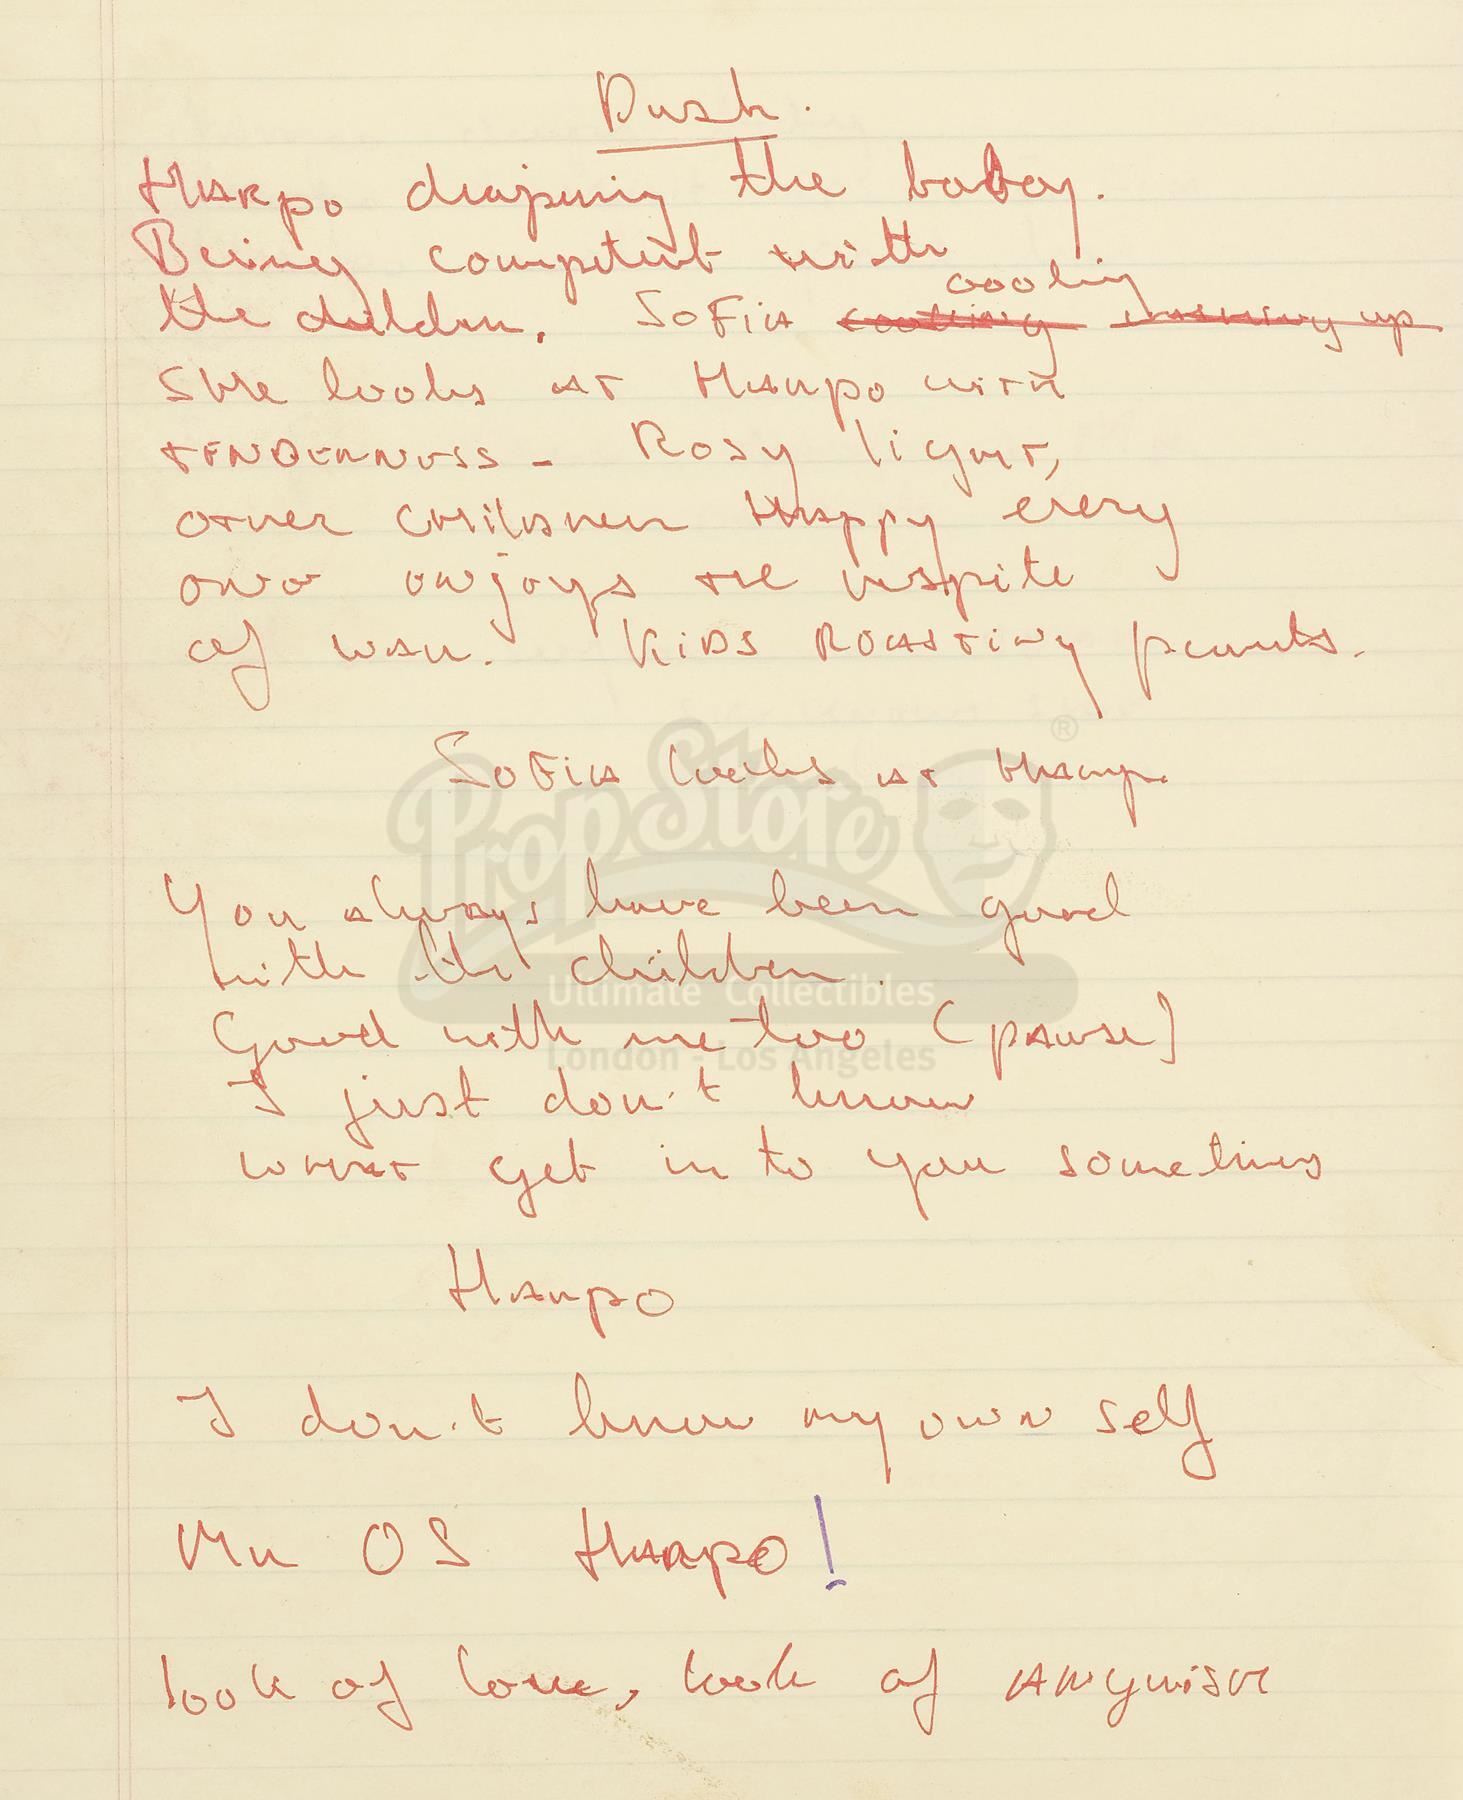 Dusk.
Harpo diapering the baby.
Being competent with
cooling
the children. Sofia cooking washing up
She looks at Harpo with
tenderness - Rosy light,
other children Happy every
one enjoys the respite
of war. Kids Roasting peanuts.
Sofia looks at Harpo
You always have been good
with the children.
Good with me too (pause)
I just don't know
what get in to you sometimes
Harpo
I don't know my own self
Mr OS Harpo!
look of love, look of anguish
PropStore®
Ultimate Collectibles
London - Los Angeles